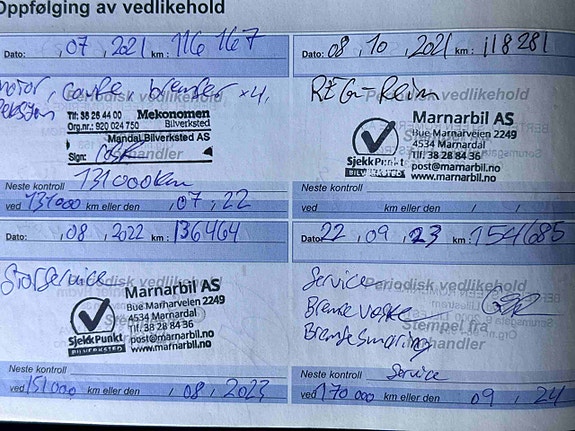 Oppfølging av vedlikehold
Dato: , 07 , 2021 km : 116 167
motor, , bremser x4,
Periodisk vedlikehold
Tlf: 38 26 44 00 Mekonomen
Org.nr.: 920 024 750 Bilverksted
Mandal Bilverksted AS
Sign:
131000km
Neste kontroll
ved 131000 km eller den , 07 , 22
Dato: 08 , 10 , 2021 km : 118281
REG-Reim
Periodisk vedlikehold
Marnarbil AS
Bue Marnarveien 2249
4534 Marnardal
Tlf. 38 28 84 36
post@marnarbil.no
www.marnarbil.no
SjekkPunkt
BILVERKSTED
Neste kontroll
ved km eller den , / , /
Dato: , 08 , 2022 km : 136464
Storservice
Periodisk vedlikehold
Marnarbil AS
Bue Marnarveien 2249
4534 Marnardal
Tlf. 38 28 84 36
post@marnarbil.no
www.marnarbil.no
SjekkPunkt
BILVERKSTED
Neste kontroll
ved 151000 km eller den , 08 , 2023
Dato: 22 , 09 , 23 km : 154685
Service
Periodisk vedlikehold
Bremse væske
Bremsesmøring
Stempel fra
forhandler
Neste kontroll Service
ved 170 000 km eller den 09 , 24